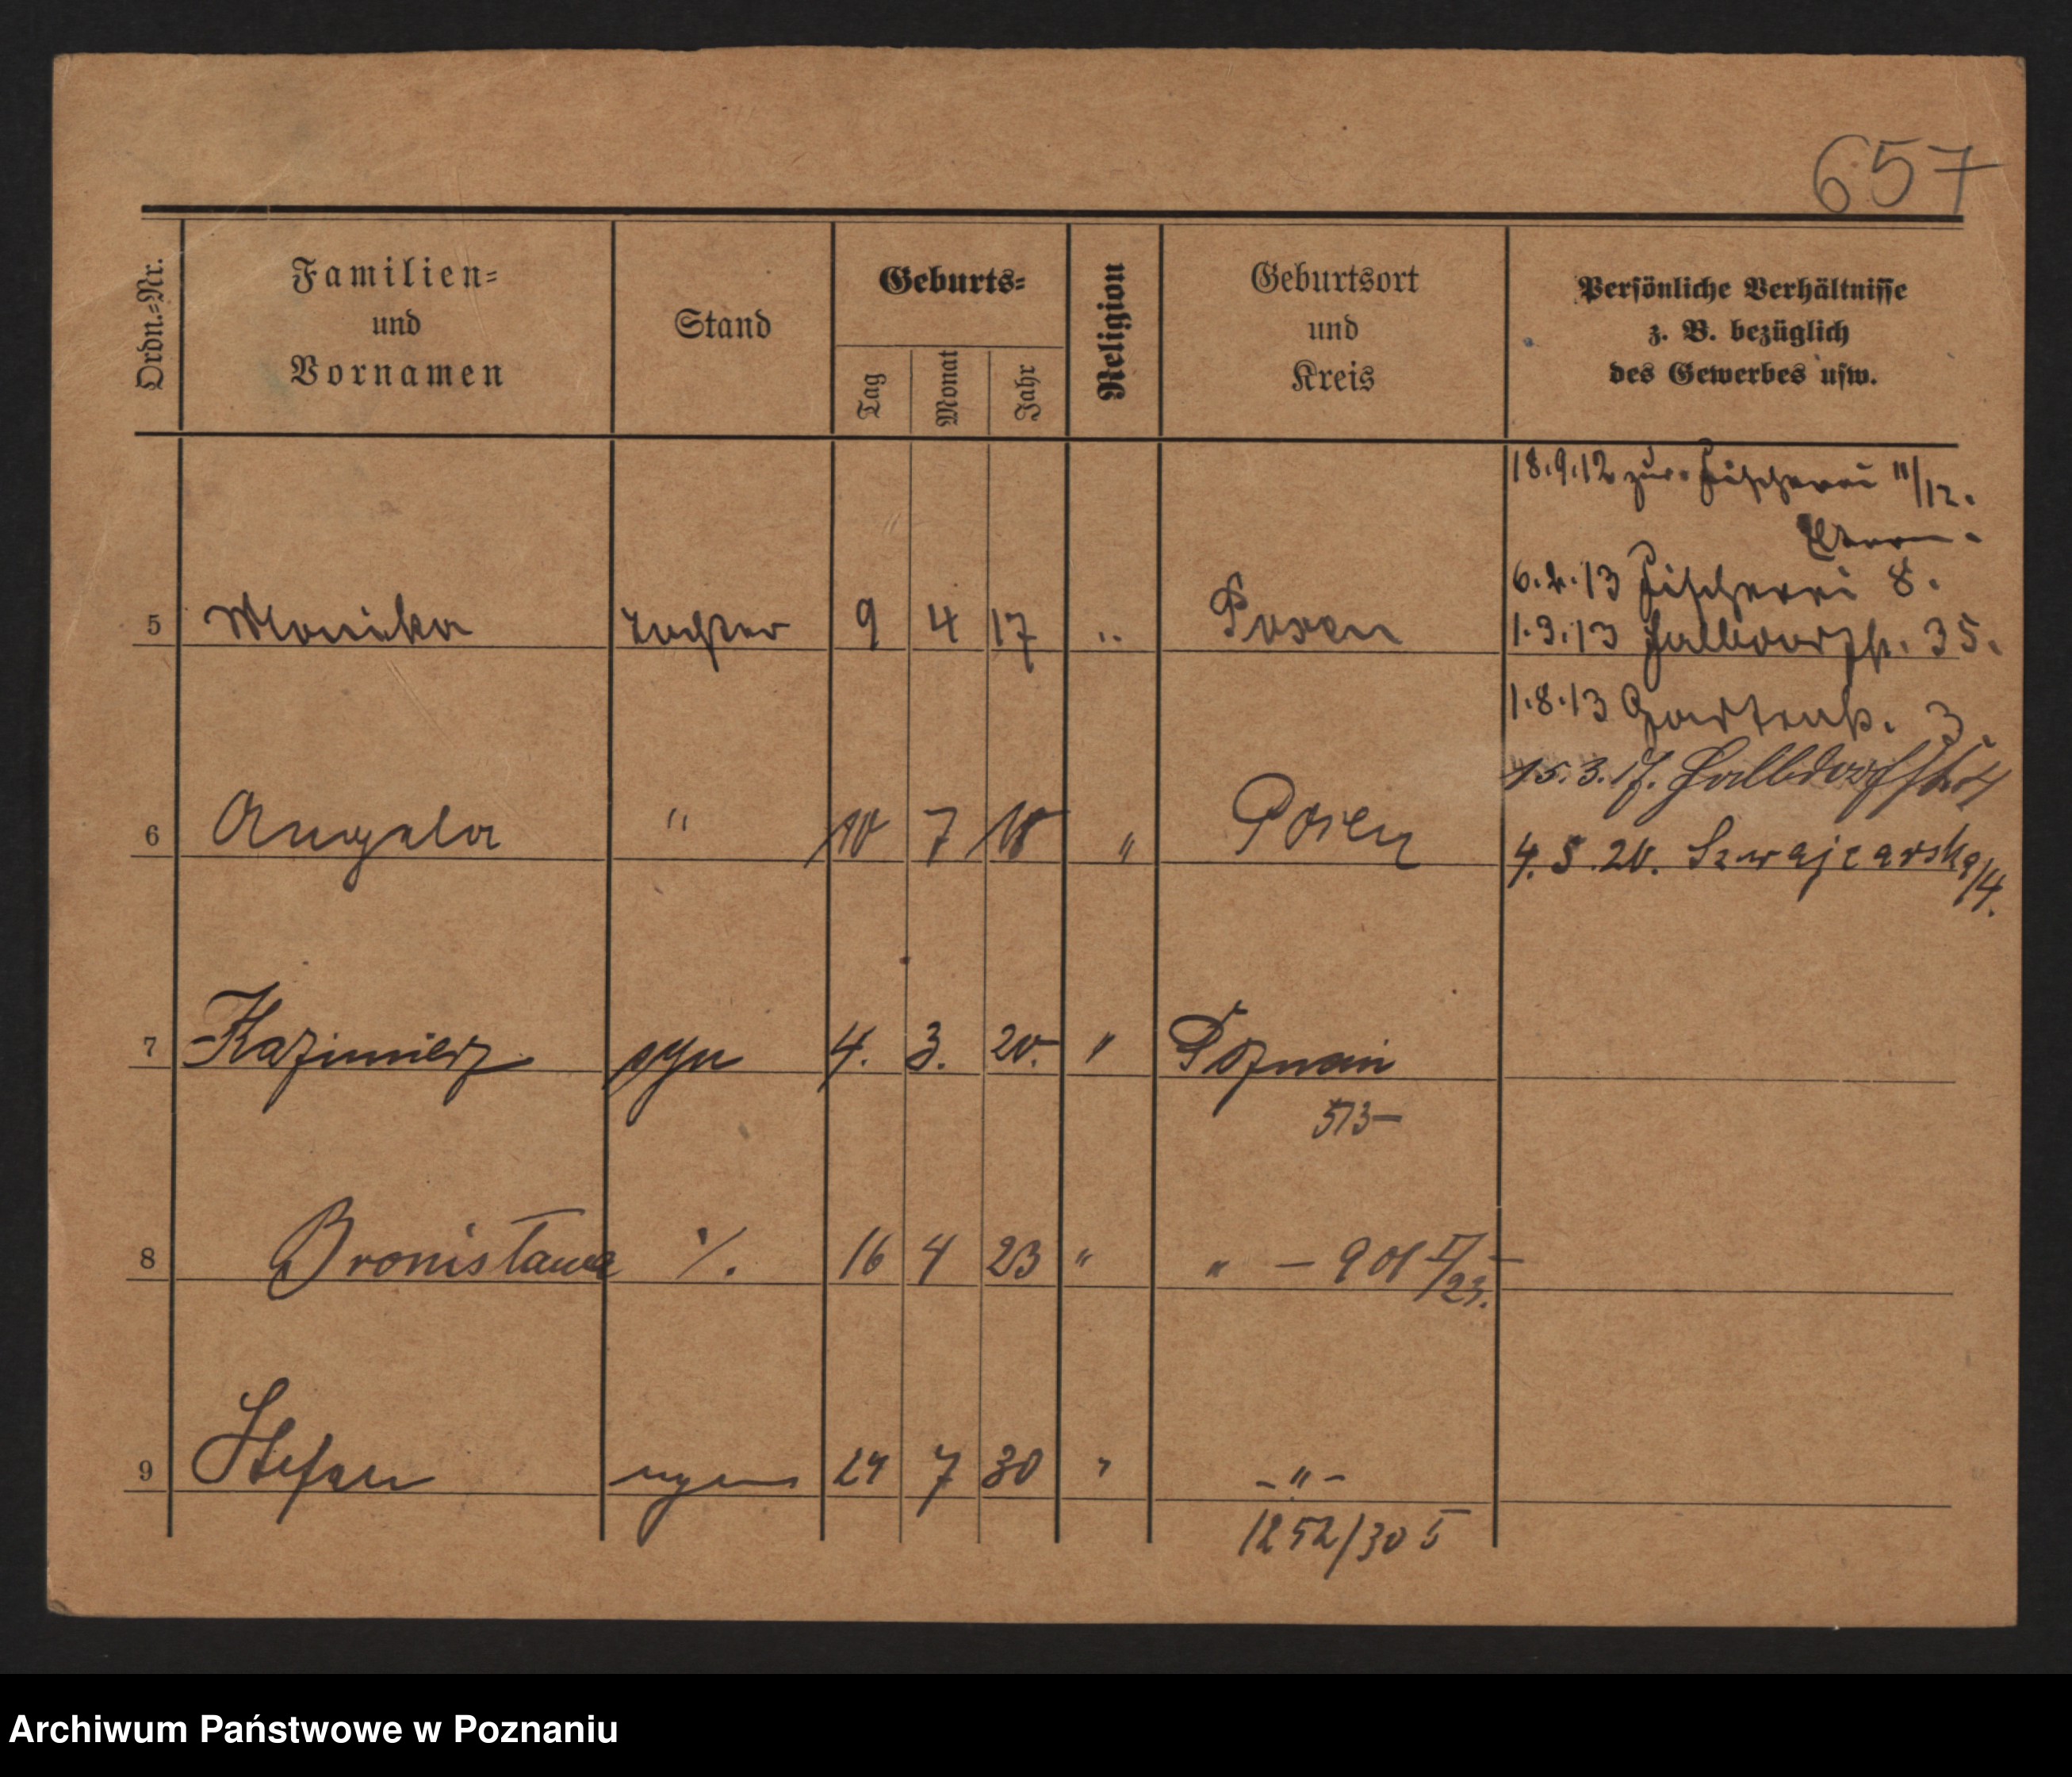 657
Ordn.=Nr.
Familien=
und
Vornamen
Stand
Geburts=
Tag
Monat
Jahr
Religion
Geburtsort
und
Kreis
Persönliche Verhältnisse
z. B. bezüglich
des Gewerbes usw.
18.9.12 zur. Fischerei 11/12.
6.2.13 Fischerei 8.
5 Monika Tochter 9 4 17 " Posen 1.3.13 Halbdorfstr. 35.
1.8.13 Gartenstr. 3.
15.3.17. Halbdorfstr.
6 Angela " 10 7 18 " Posen 4.5.20. Szwajcarska/4.
7 Kazimierz syn 4. 3. 20. " Poznań
513—
8 Bronisława ·/. 16 4 23 " " — 901 I/23. —
9 Stefan 24 7 30 " — " —
1252/30 5
Archiwum Państwowe w Poznaniu